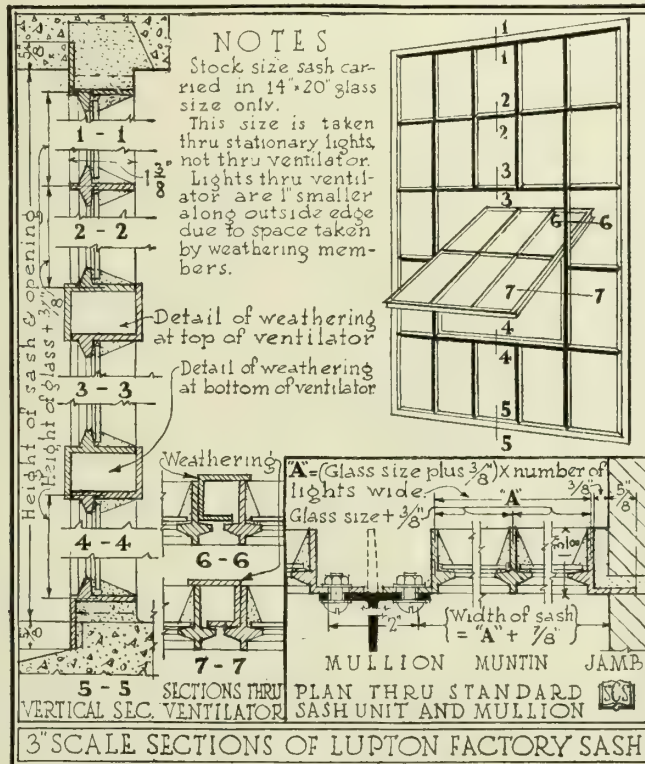 NOTES
Stock size sash car-
ried in 14"×20" glass
size only.
This size is taken
thru stationary lights,
not thru ventilator.
Lights thru ventil-
ator are 1" smaller
along outside edge
due to space taken
by weathering mem-
bers.
5/8"
1 - 1
1 3/8"
2 - 2
Height of sash & opening
Height of glass + 3/8"
Detail of weathering
at top of ventilator
3 - 3
Detail of weathering
at bottom of ventilator
4 - 4
5/8
5 - 5
VERTICAL SEC.
Weathering
6 - 6
7 - 7
SECTIONS THRU
VENTILATOR
1
1
2
2
3
3
6 6
7 7
4
4
5
5
"A"=(Glass size plus 3/8")×number of
lights wide.
"A"
3/8"
5/8"
Glass size + 3/8"
2"
{Width of sash}
{= "A" + 7/8"}
MULLION MUNTIN JAMB
PLAN THRU STANDARD
SASH UNIT AND MULLION
SCS
3" SCALE SECTIONS OF LUPTON FACTORY SASH